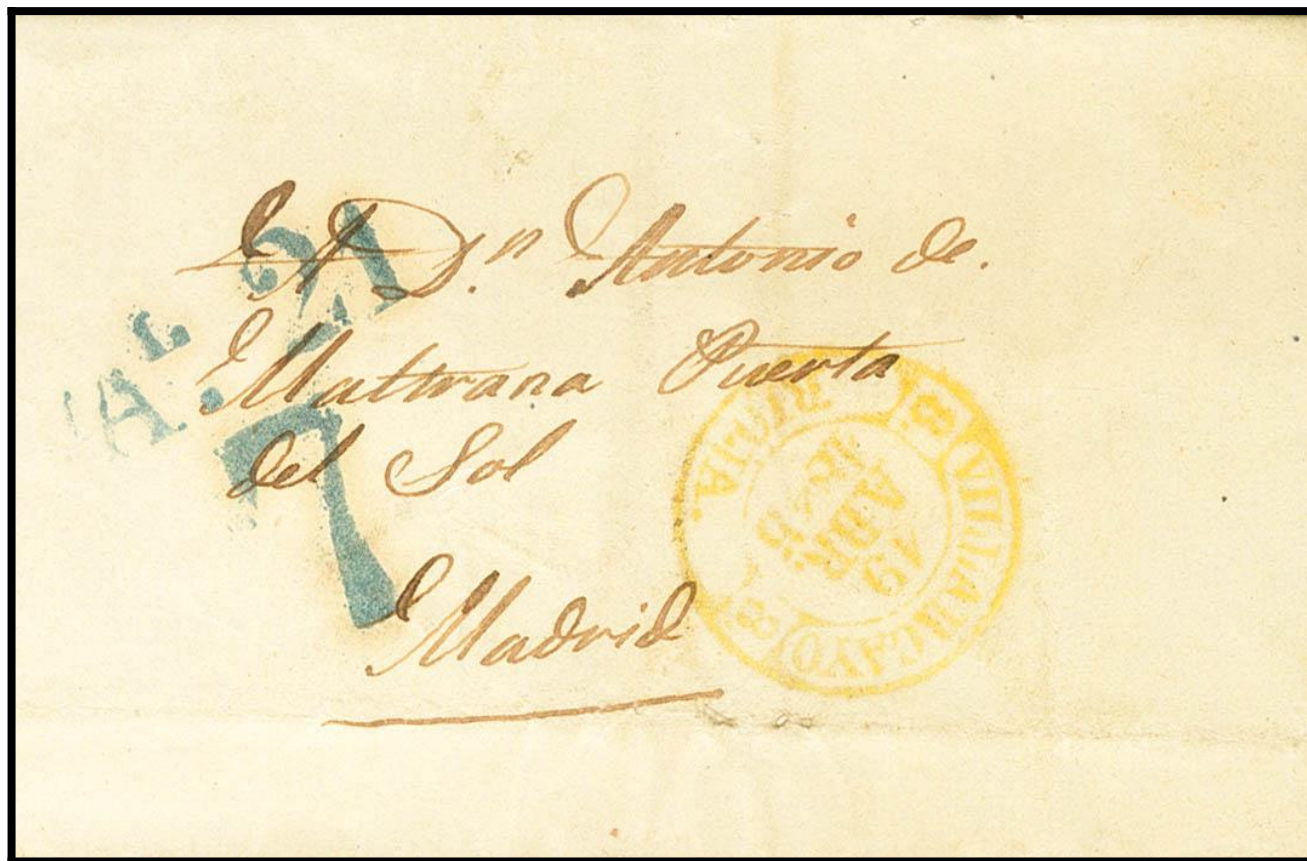 A Dn. Antonio de.
Maltrana Puerta
del Sol
Madrid
7
VILLARCAYO
19
ABR